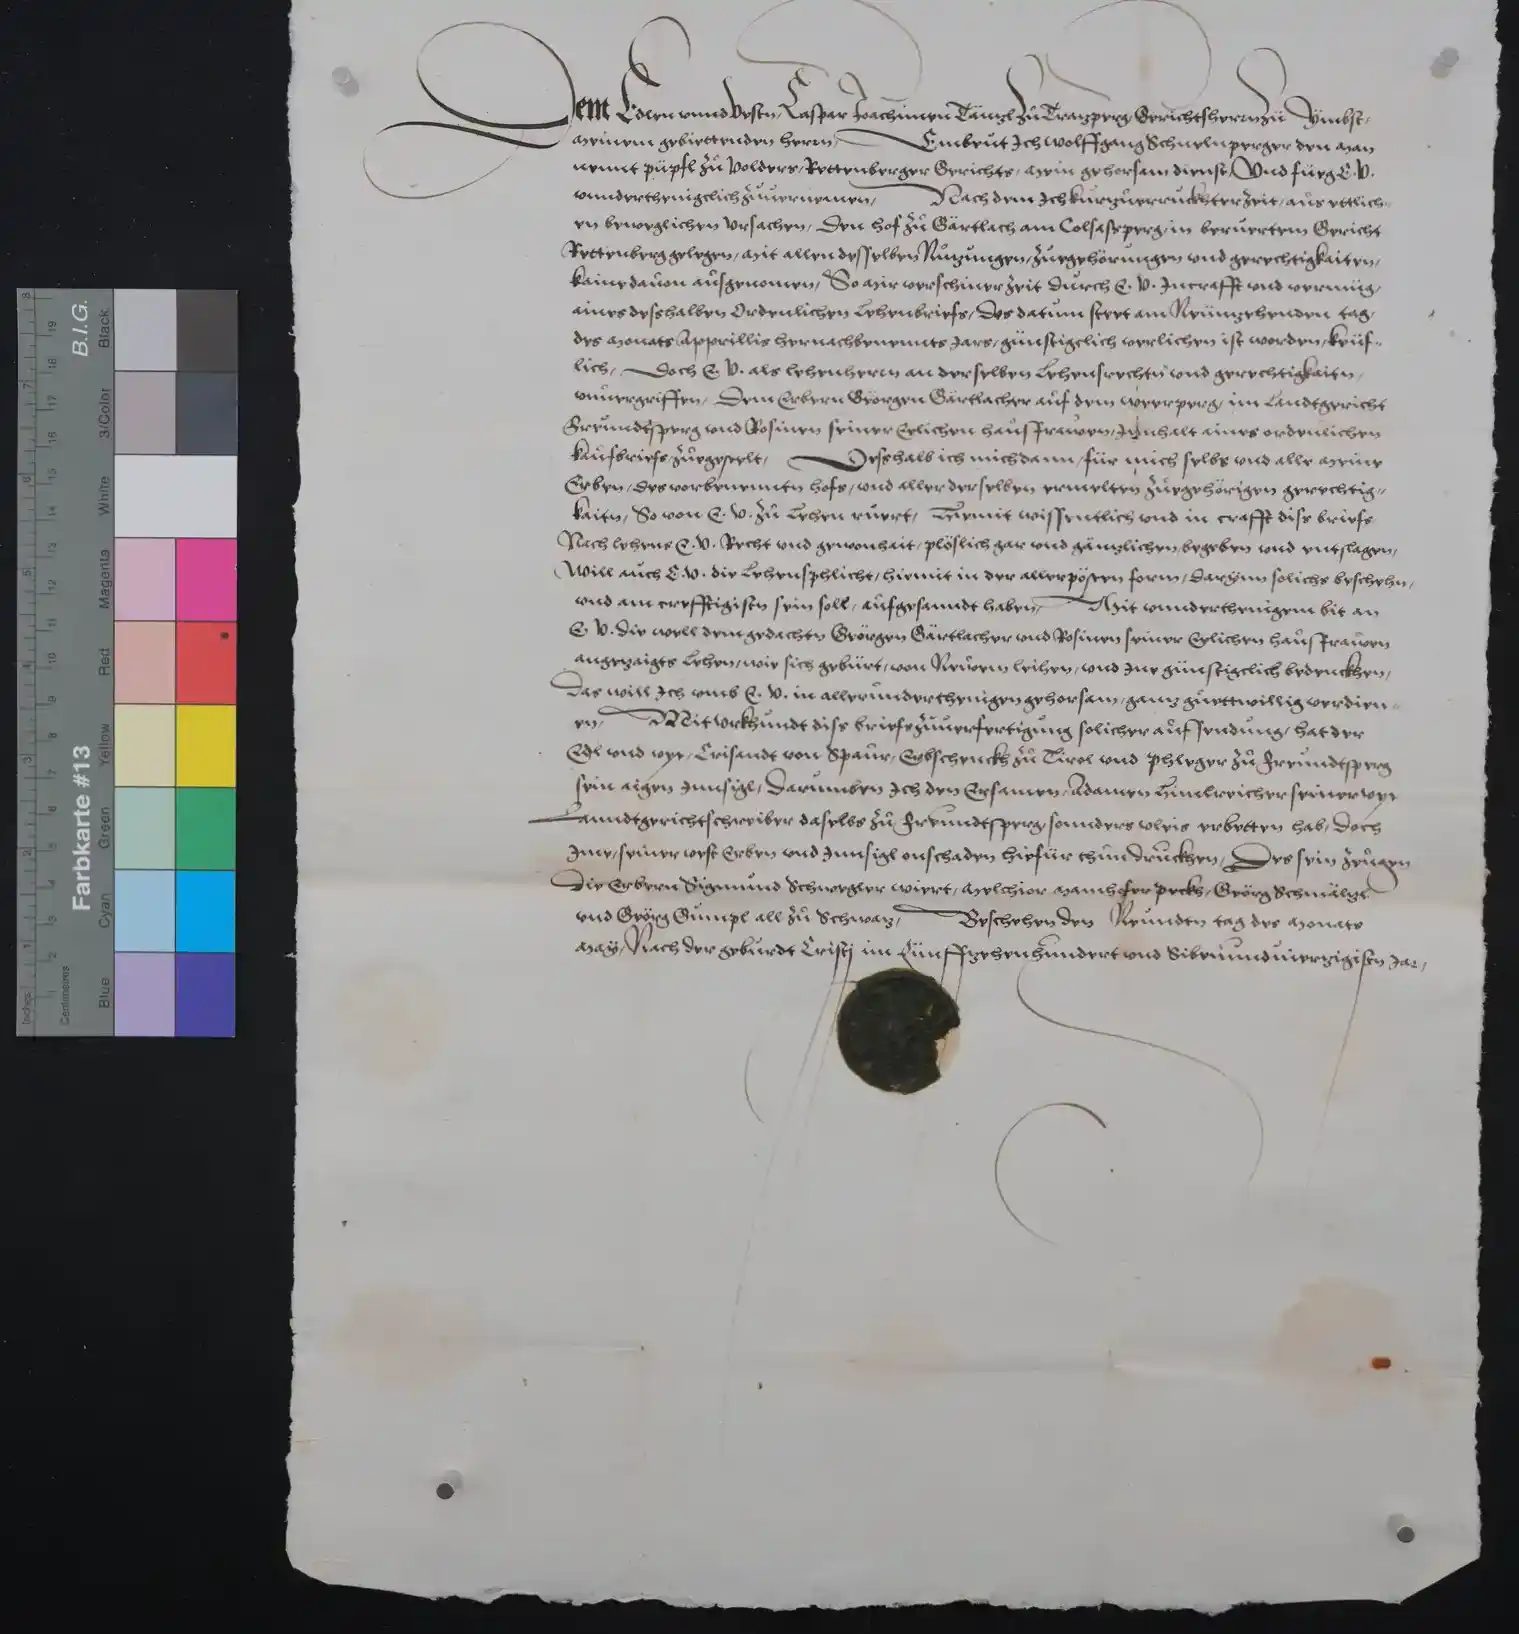 Dem Edlen unnd Vesten, Caspar Joachimen Tänzl zů Tratzperg Gerichtsherrn zů Ymbst,
meinem gebiettenden herrn, Embeut Ich Wolffgang Schnelnperger den man
nennt püpfl zů Volders, Rettenberger Gerichts, mein gehorsam dienst, Und füeg E. V.
unnderthenigclich zůvernemen, Nach dem Ich kurtzverruckhter zeit, aus ettlich-
en beweglichen ursachen, den hof zů Gärtlach am Colsasperg, in berüertem Gericht
Rettenberg gelegen, mit allen desselben Nutzungen, zuegehörungen und gerechtigkaiten,
kaine davon ausgenomen, So mir verschiner zeit durch E. V. In crafft und vermüg,
aines desshalben Ordenlichen Lehenbriefs, des datum steet am Neuntzehenden tag,
des monats Apprillis hernachbenennts Jars, günstigclich verlichen ist worden, keuf-
lich, Doch E. V. als lehenherrn an derselben Lehensrechtn und gerechtigkaitn,
unvergriffen, Dem Erbern Georgen Gärtlacher auf dem Weerperg, im Landtgericht
Freundtsperg und Rosinen seiner Eelichen hausfrawen, Innhalt aines ordenlichen
kaufbriefs, zůegestelt, Desshalb ich mich dann, für mich selbs und alle meine
Erben, des vorbenenntn hofs, und aller derselben ermelten zůegehörigen gerechtig-
kaitn, So von E. V. zů Lehen rüert, Hiemit wissentlich und in crafft diss briefs
Nach lehens E. V. Recht und gewonhait, plöslich gar und gäntzlichen begeben und entslagen,
Will auch E. V. die Lehensphlicht, hiemit in der allerpösten form, darynn solichs beschehn,
und am crefftigisten sein soll, aufgesanndt haben, Mit unnderthenigem bit an
E. V. die well dem gedachtn Georgen Gärtlacher und Rosinen seiner Eelichen hausfrawen
angezaigts Lehen, wie sich gebürt, von Newem leihen, und Ine günstigclich bedenckhen,
Das will Ich umb E. V. in aller underthenigen gehorsam, gantz guettwillig verdien-
en, Mit Urkhundt diss briefs zůverfertigung solicher aufsendung, hat der
Edl und vest, Crisandt von Spaur, Erbschenckh zů Tirol und phleger zů Freundtsperg
sein aigen Innsigl, Darumben Ich den Ersamen, Adamen Himelreicher seiner vest
Lanndtgerichtschreiber daselbs zů Freundtsperg, sonnders vleis erbetten hab, doch
Ime, seiner vest Erben und Innsigl onschaden hiefür thůn druckhen, Des sein zeugen
die Erbern Sigmund Schwegler wiert, Melchior Mamhofer peckh, Georg Schmältzl
und Georg Gumpl all zů Schwatz, Beschehen den Neundtn tag des monats
May, Nach der geburdt Cristj im Fünffzehenhundert und Sibenundviertzigisten Jar,